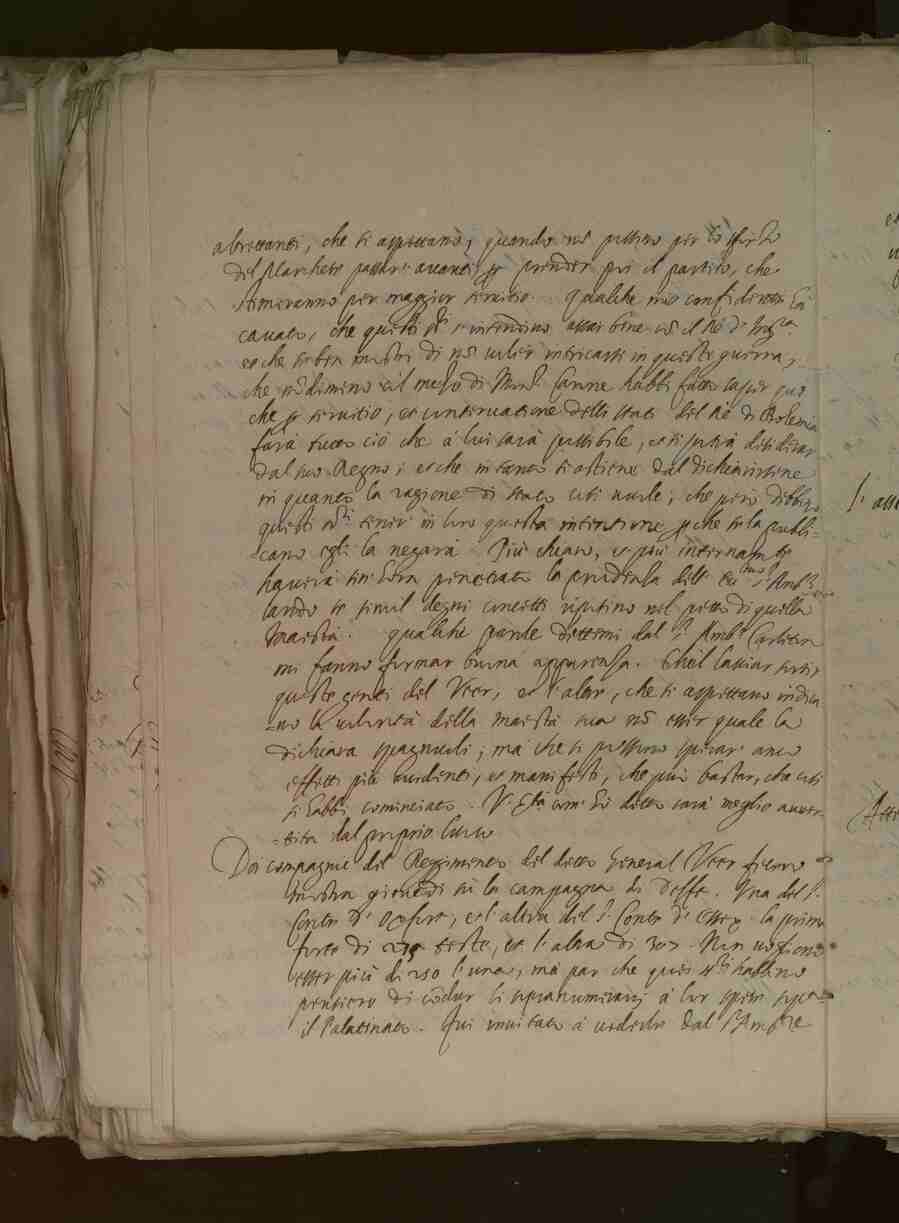 abrettanti, che si aspettano, quando nõ possino per lo sforzo
del Marchese passar avanti, prender poi il partito, che
stimeranno per maggior servitio. qualche mio confidente ha
cavato, che questi sri s'intendino assai bene cõ il Rè d'Ingra.
et che se ben mostri di nõ voler intricarsi in queste guerra,
che nõdimeno col mezo di Mons.r Carine habbi fatto saper quà
che per servitio, et conservatione delli stati del Rè di Bohemia
farà tutto ciò che à lui sarà possibile, et si potrà
dal suo Regno; et che in tanto si astiene dal dichiarirsene
in quanto la ragione di stato così vuole; che però debbino
questi sri. tener in loro questa intentione perche se la publi=
=cano egli la negarà. Più chiaro, et più internamte
haverà sin hora penetrato la prudenza dell' Eccmo sr. Ambr.
Lando se simil degni concetti riputino nel petto di quella
Maestà. qualche parole dettemi dal sr. Ambr. Carleton
mi fanno formar buona apparenza. Che il lasciar sortir
queste genti del Veer, et l'altre, che si aspettano indica=
=no la volontà della maestà sua nõ esser quale la
dichiara spagnuoli; ma che si possono sperar anco
effetti più evidenti, et manifesti, che può bastar, che così
si habbi cominciato. V. Stà com' hò detto sarà meglio aver=
=tita dal proprio loco
Doi compagnie del Reggimento del detto General Veer fecero
mostra giovedì sù la campagna di Delft. Una del sr.
Conte d'Oxfort, et l'altra del sr. Conte d'Essex. la prima
forte di teste, et l'altra di 307. Non
esser più di 250 l'una, mà par che quei sri habbino
pensiero di cõdur li sopranumerarij à lor spese
il Palatinato. Fui invitato à vederle dal sr Ambre